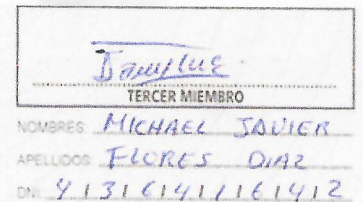 TERCER MIEMBRO
NOMBRES MICHAEL JAVIER
APELLIDOS FLORES DIAZ
DNI 4 1 3 6 4 1 6 4 2